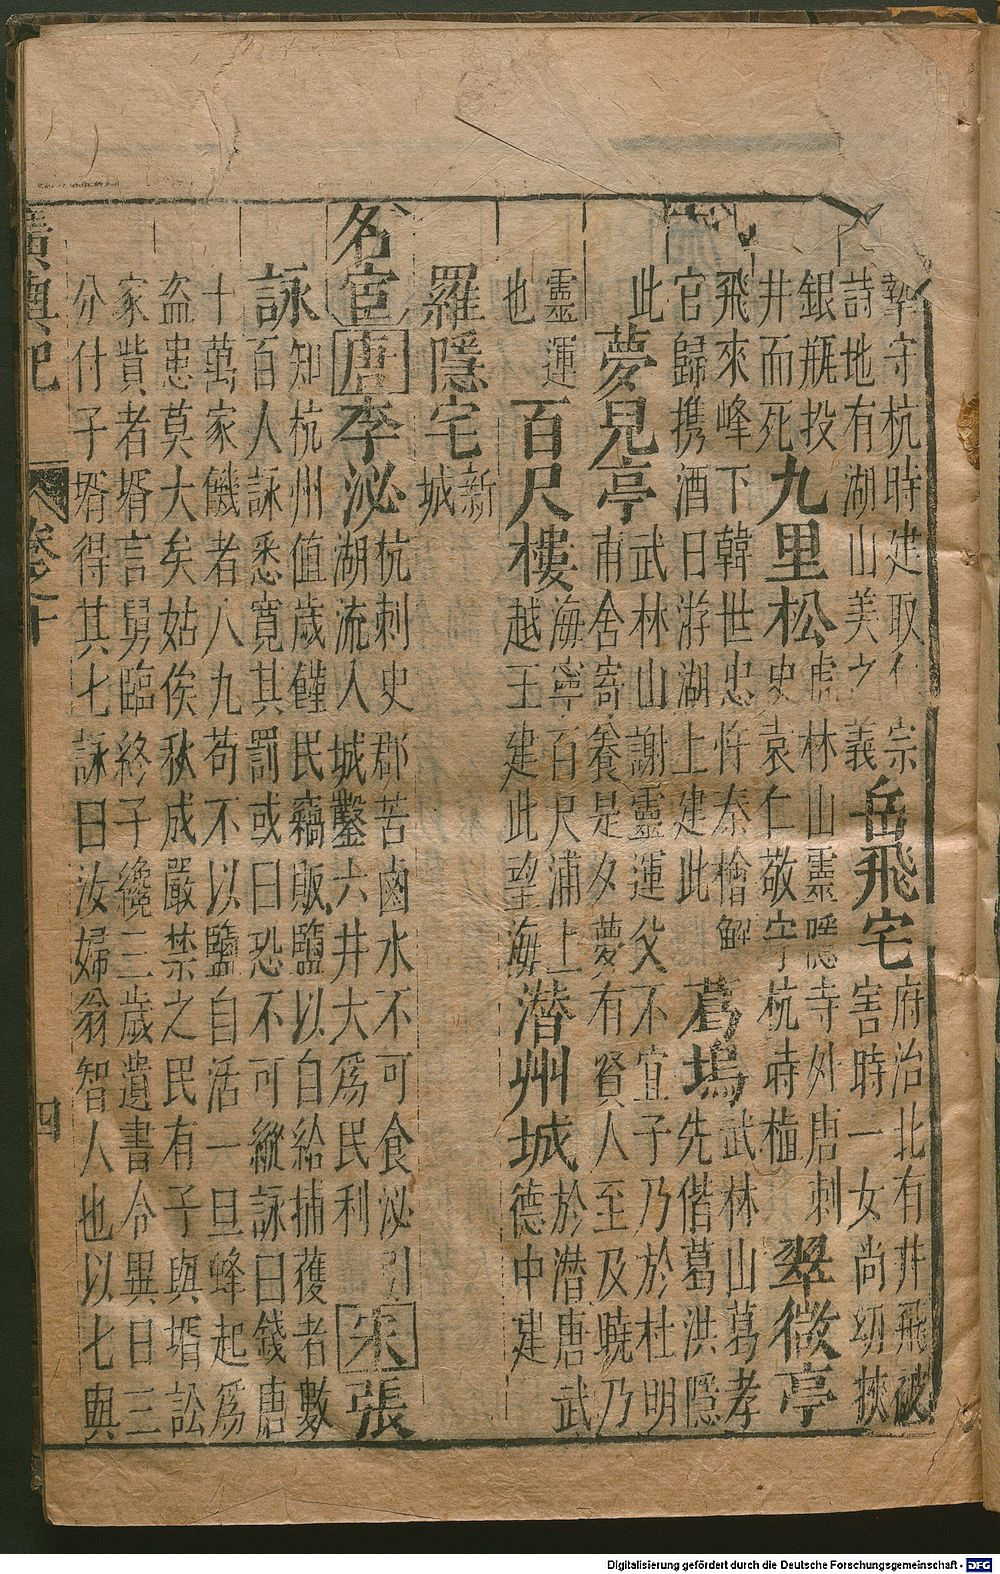 摯守杭時建取仁宗
詩地有湖山美之義
岳飛宅
府治北有井飛被
害時一女尚幼挾
銀瓶投
井而死
九里松
虎林山靈隱寺外唐刺
史袁仁敬守杭時植
翠微亭
飛來峰下韓世忠忤秦檜解
官歸携酒日游湖上建此
葛塢
武林山葛孝
先偕葛洪隱
此
夢見亭
武林山謝靈運父不宜子乃於杜明
甫舍寄養是夕夢有賢人至及曉乃
靈運
也
百尺樓
海寧百尺浦上
越王建此望海
潛州城
於潛唐武
德中建
羅隱宅
新
城
名宦
唐
李泌
杭刺史郡苦鹵水不可食泌引
湖流入城鑿六井大為民利
宋
張
詠
知杭州值歲饉民竊販鹽以自給捕獲者數
百人詠悉寬其罰或曰恐不可縱詠曰錢唐
十萬家饑者八九苟不以鹽自活一旦蜂起為
盜患莫大矣姑俟秋成嚴禁之民有子與壻訟
家貲者壻言舅臨終子纔三歲遺書令異日三
分付子壻得其七詠曰汝婦翁智人也以七與
廣輿記
卷之十
四
Digitalisierung gefördert durch die Deutsche Forschungsgemeinschaft - DFG